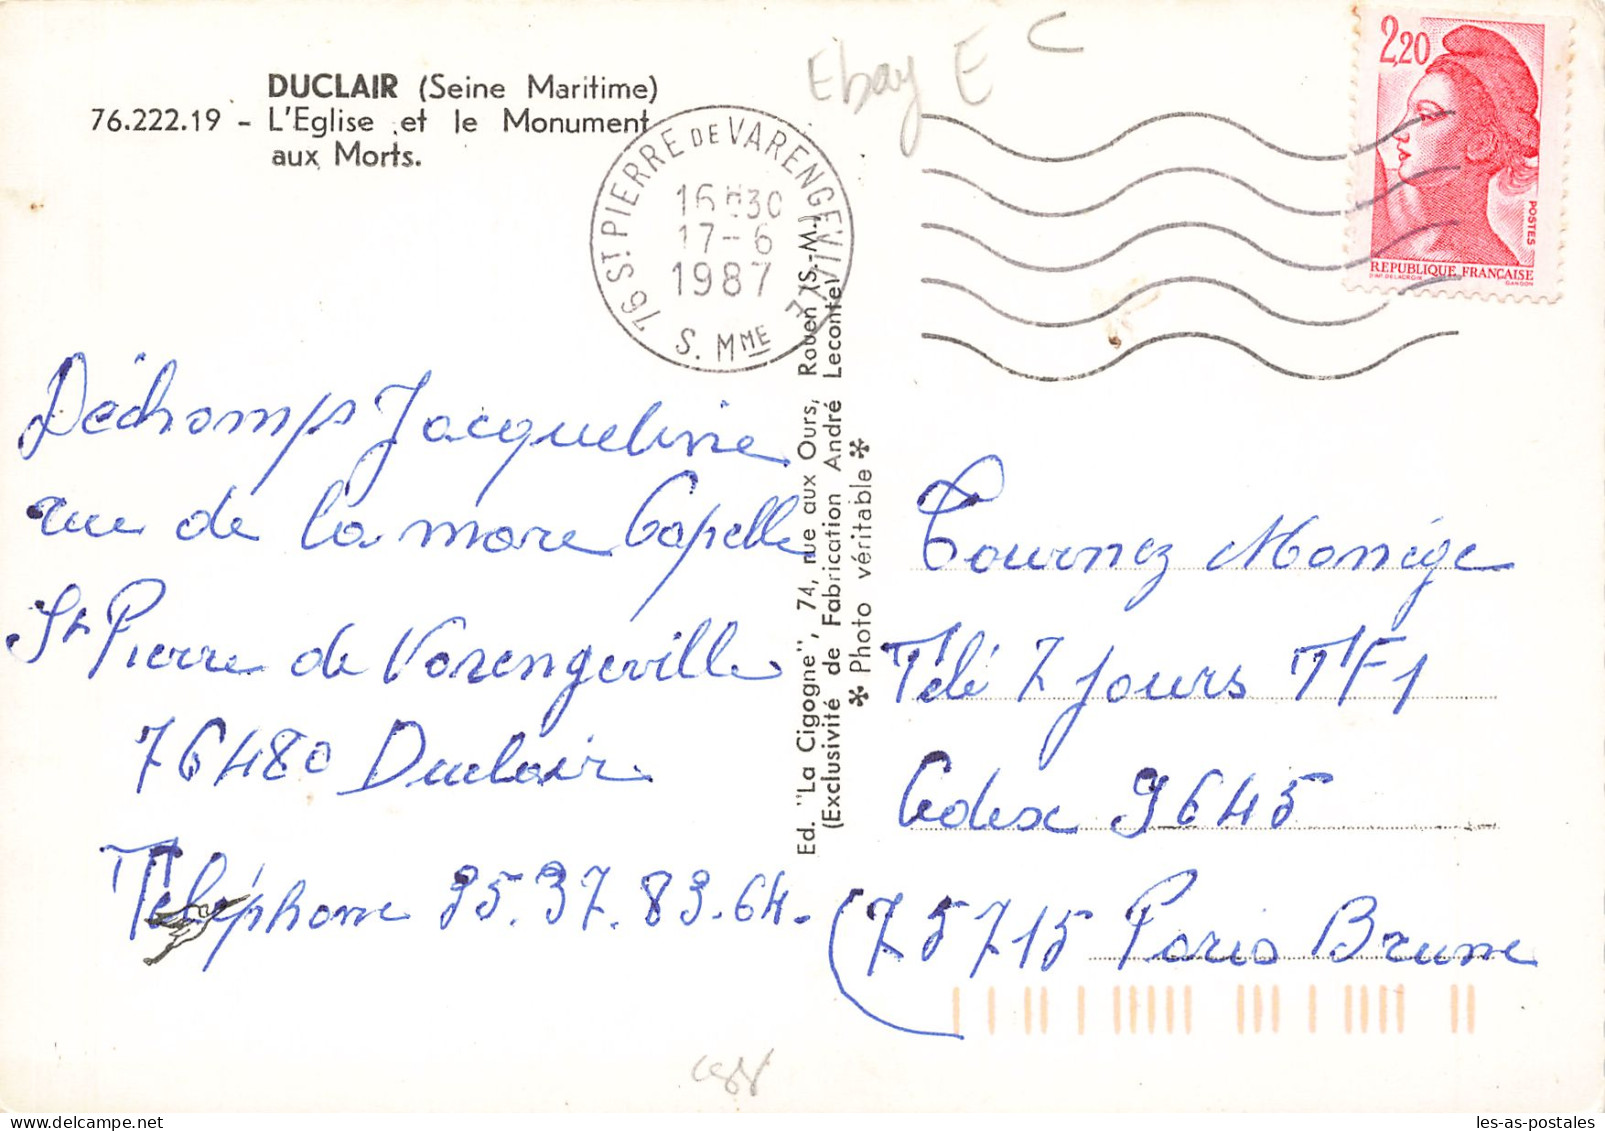 DUCLAIR (Seine Maritime)
76.222.19 - L'Eglise et le Monument
aux Morts.
Ebay E C
2,20
POSTES
REPUBLIQUE FRANÇAISE
D'AP. DELACROIX
GANDON
76 ST PIERRE DE VARENGEVILLE
16H30
17-6
1987
S. MME
Déchamps Jacqueline
rue de la mare Capelle
St Pierre de Varengeville
76480 Duclair
Téléphone 35.37.83.64.
Ed. "La Cigogne", 74, rue aux Ours, Rouen (S.-M.)
(Exclusivité de Fabrication André Leconte)
* Photo véritable *
Tournez Manège
Télé 7 jours TF1
Cedex 9645
75715 Paris Brune
les-as-postales.com